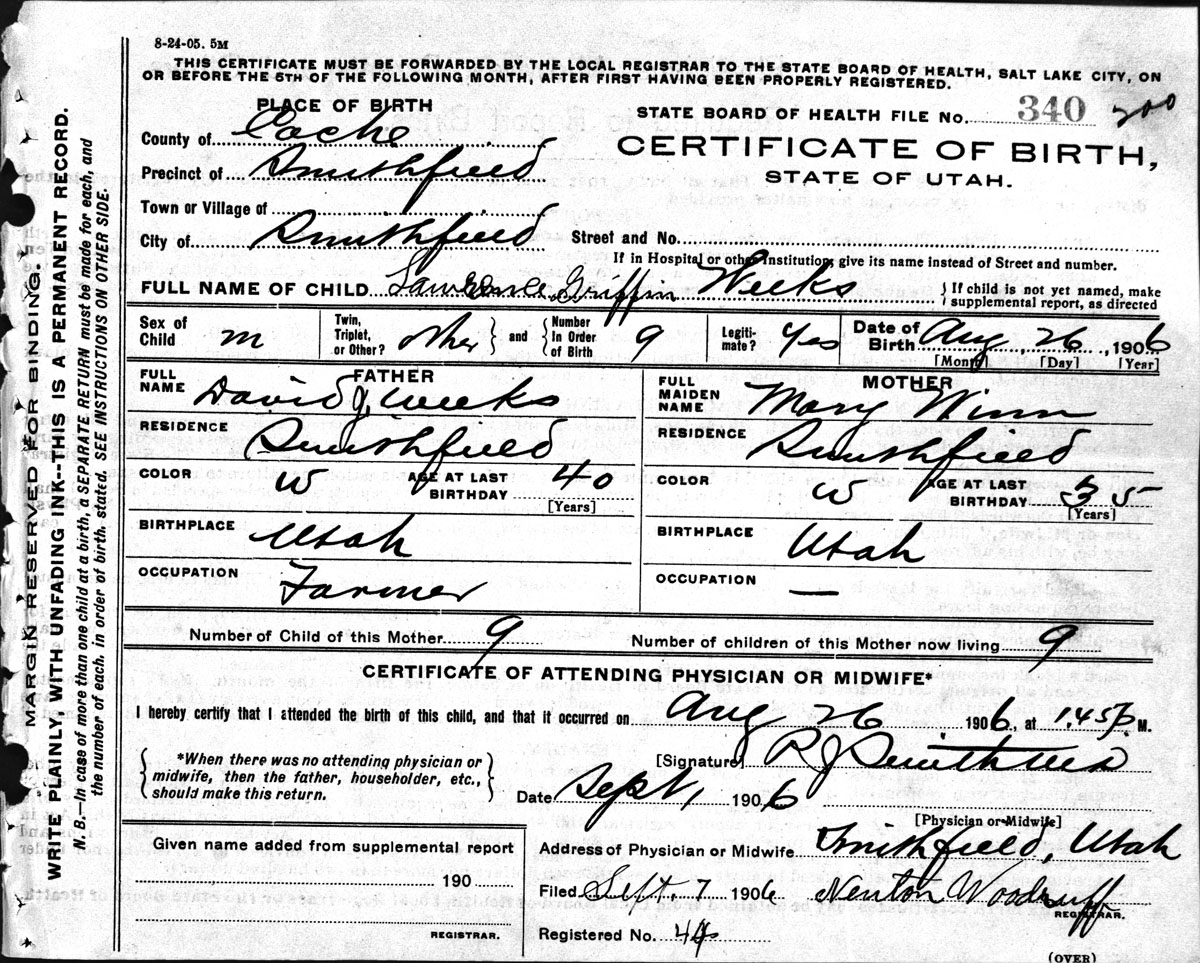 8-24-05. 5M
THIS CERTIFICATE MUST BE FORWARDED BY THE LOCAL REGISTRAR TO THE STATE BOARD OF HEALTH, SALT LAKE CITY, ON
OR BEFORE THE 5TH OF THE FOLLOWING MONTH, AFTER FIRST HAVING BEEN PROPERLY REGISTERED.
PLACE OF BIRTH
STATE BOARD OF HEALTH FILE No. 340 200
County of Cache
CERTIFICATE OF BIRTH,
Precinct of Smithfield
STATE OF UTAH.
Town or Village of
City of Smithfield Street and No.
If in Hospital or other Institution, give its name instead of Street and number.
FULL NAME OF CHILD Lawrence Griffin Weeks { If child is not yet named, make
supplemental report, as directed
Sex of Child m Twin, Triplet, or Other? other } and { Number In Order of Birth 9 Legitimate? Yes Date of Birth Aug, 26, 1906
[Month] [Day] [Year]
FATHER
FULL NAME David J Weeks
RESIDENCE Smithfield
COLOR W AGE AT LAST BIRTHDAY 40
[Years]
BIRTHPLACE Utah
OCCUPATION Farmer
MOTHER
FULL MAIDEN NAME Mary Winn
RESIDENCE Smithfield
COLOR W AGE AT LAST BIRTHDAY 35
[Years]
BIRTHPLACE Utah
OCCUPATION —
Number of Child of this Mother 9 Number of children of this Mother now living 9
CERTIFICATE OF ATTENDING PHYSICIAN OR MIDWIFE*
I hereby certify that I attended the birth of this child, and that it occurred on Aug 26 1906, at 1.45 P. M.
{ *When there was no attending physician or
midwife, then the father, householder, etc.,
should make this return. }
[Signature] R J Smith
Date Sept, 1 1906
[Physician or Midwife]
Given name added from supplemental report
190
REGISTRAR.
Address of Physician or Midwife Smithfield, Utah
Filed Sept. 7 1906 Newton Woodruff
REGISTRAR.
Registered No. 44
(OVER)
MARGIN RESERVED FOR BINDING.
WRITE PLAINLY, WITH UNFADING INK--THIS IS A PERMANENT RECORD.
N. B.—In case of more than one child at a birth, a SEPARATE RETURN must be made for each, and
the number of each, in order of birth, stated. SEE INSTRUCTIONS ON OTHER SIDE.